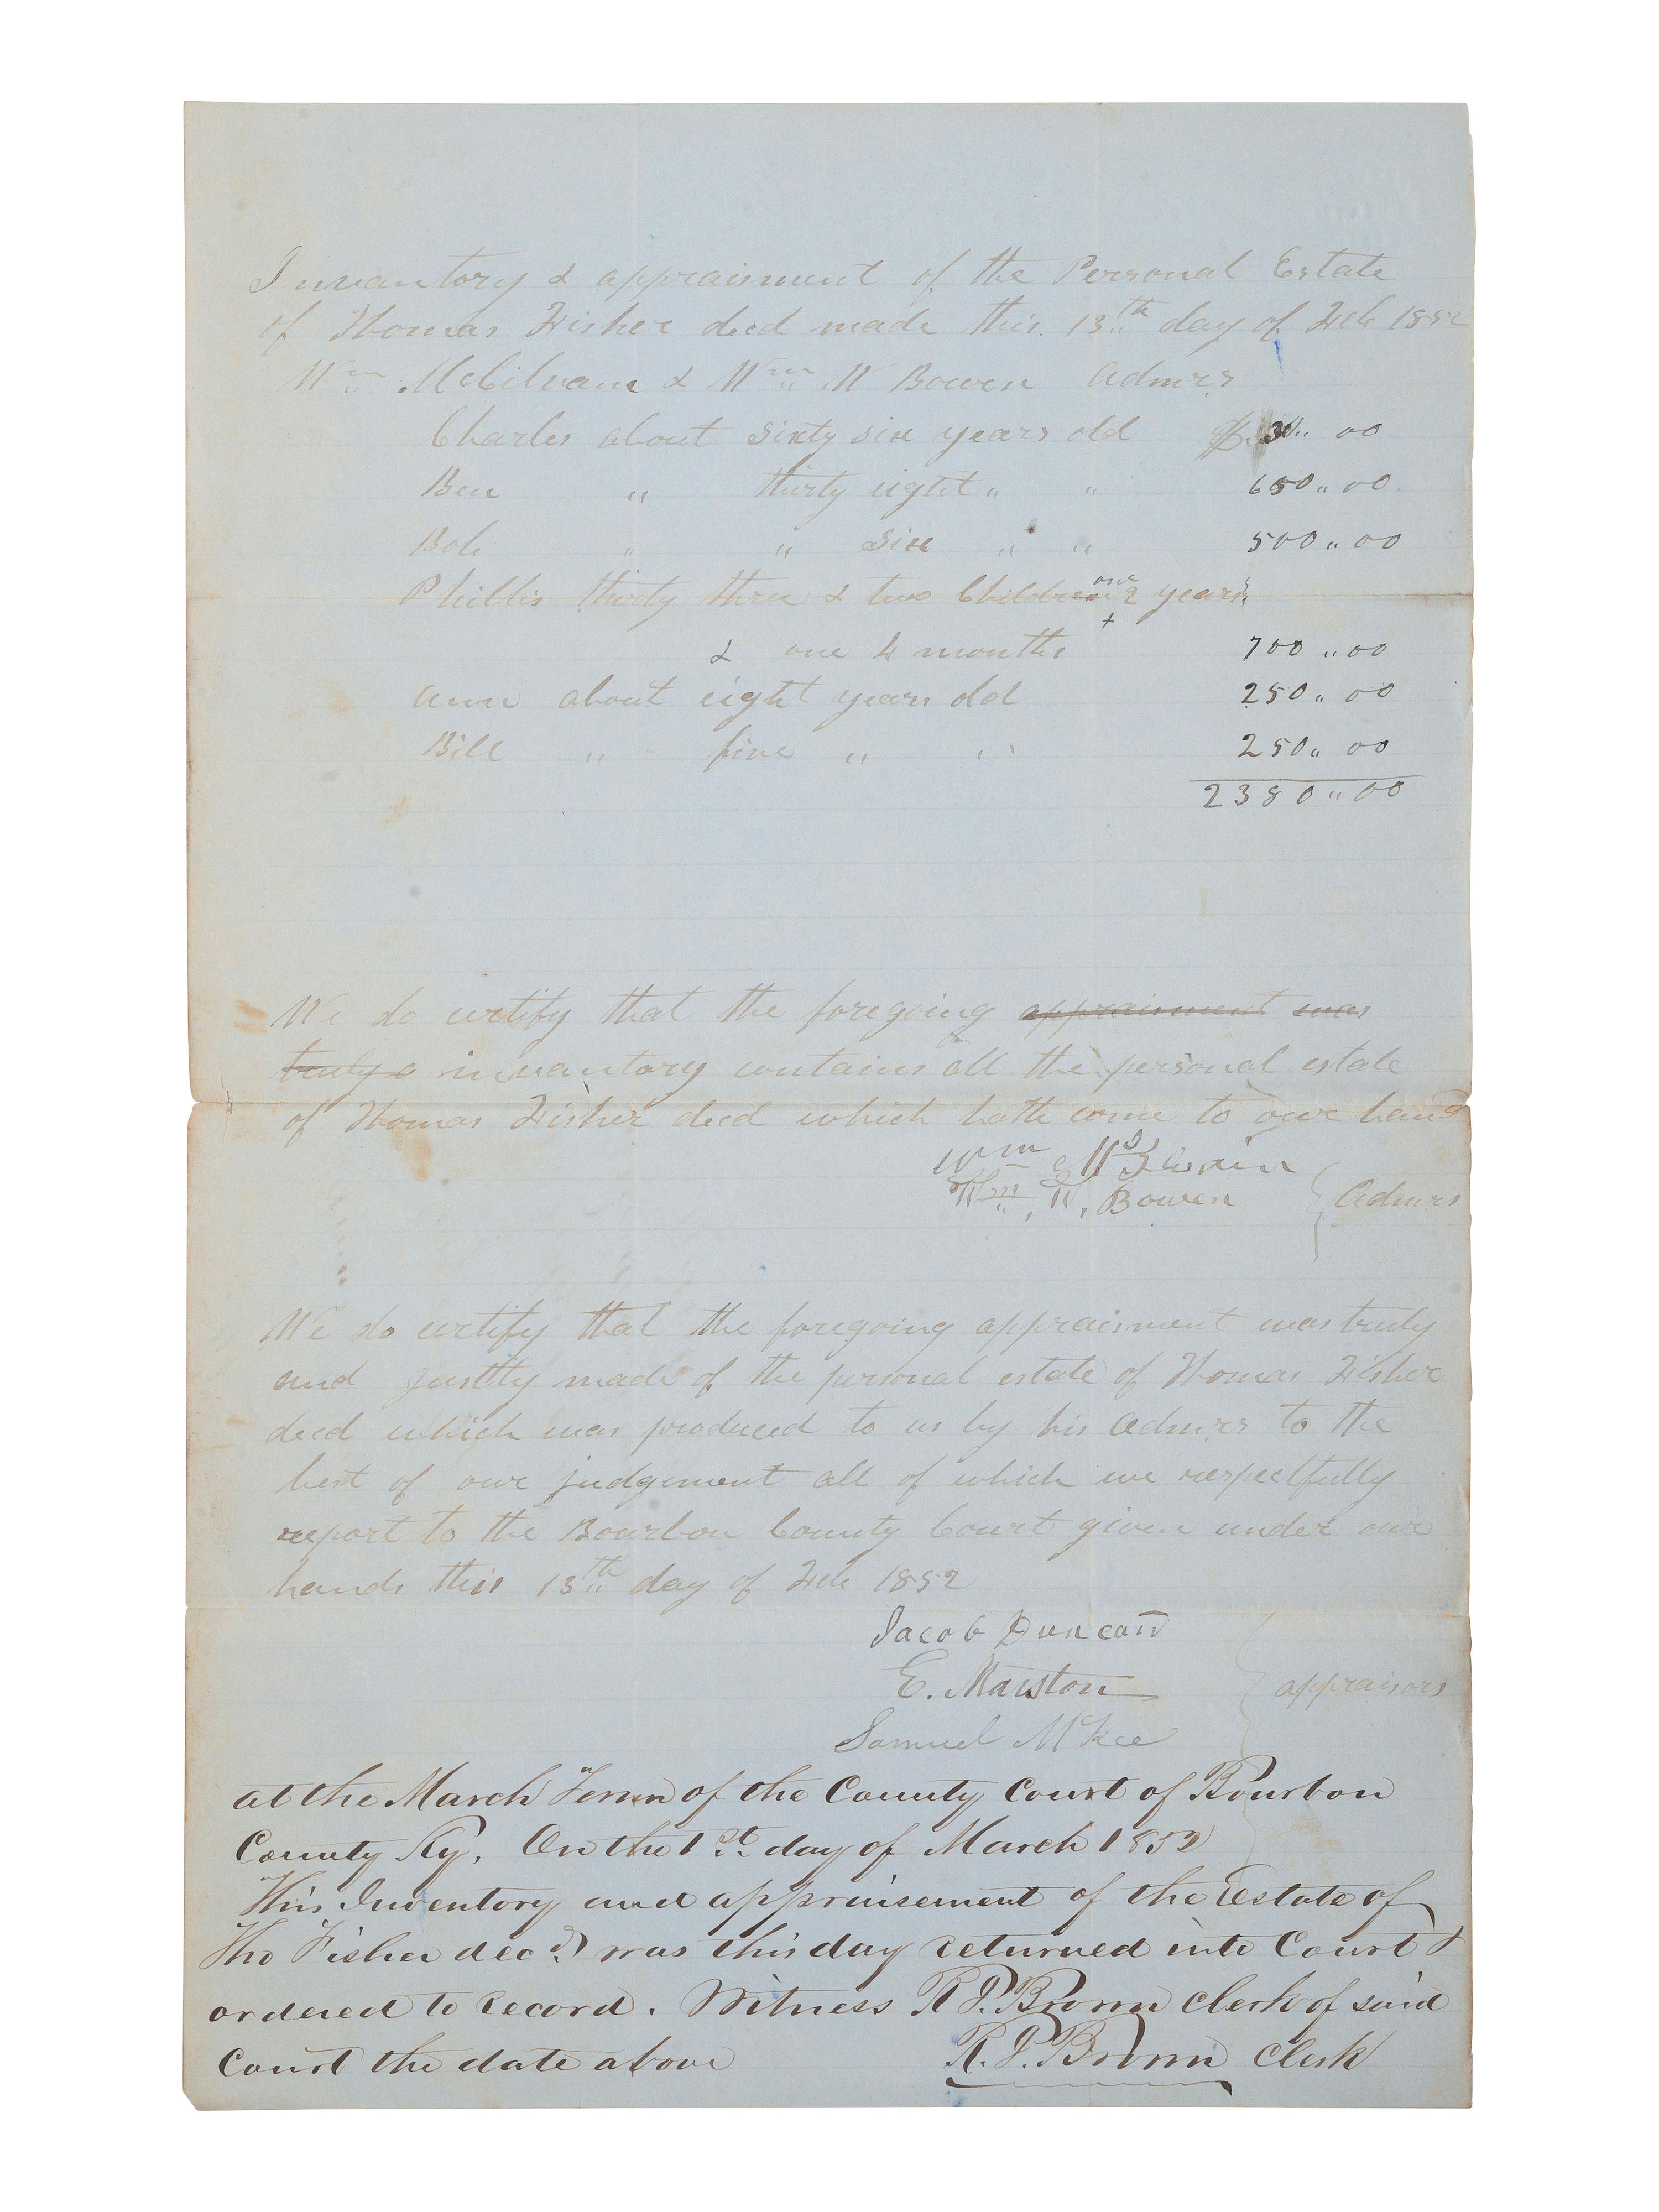 Invantory & appraisment of the Personal Estate
of Thomas Fisher decd made this 13th day of Feb 1852
Wm McCilvain & Wm W Bowen Admrs
Charles about Sixty six years old $ 30,, 00
Ben " thirty eight " " 650,, 00
Bob " " Six " " 500,, 00
Phillis thirty three & two Children one 2 years
& one 4 months 700,, 00
Ann about eight years old 250,, 00
Bill " five " " 250,, 00
2380,, 00
We do certify that the foregoing appraisment was
truly a invantory contains all the personal estate
of Thomas Fisher decd which hath come to our hand
Wm McIlvain
Wm. W. Bowen } Admrs
We do certify that the foregoing appraisment was truly
and justtly made of the personal estate of Thomas Fisher
decd which was produced to us by his Admrs to the
best of our judgement all of which we respectfully
report to the Bourbon County Court given under our
hands this 13th day of Feb 1852
Jacob Duncan
E. Marston } appraisors
Samuel McKee
at the March Term of the County Court of Bourbon
County Ky. On the 1st day of March 1852
This Inventory and appraisement of the Estate of
Tho Fisher decd was this day returned into Court &
ordered to record. Witness R. J. Brown clerk of said
Court the date above R. J. Brown Clerk